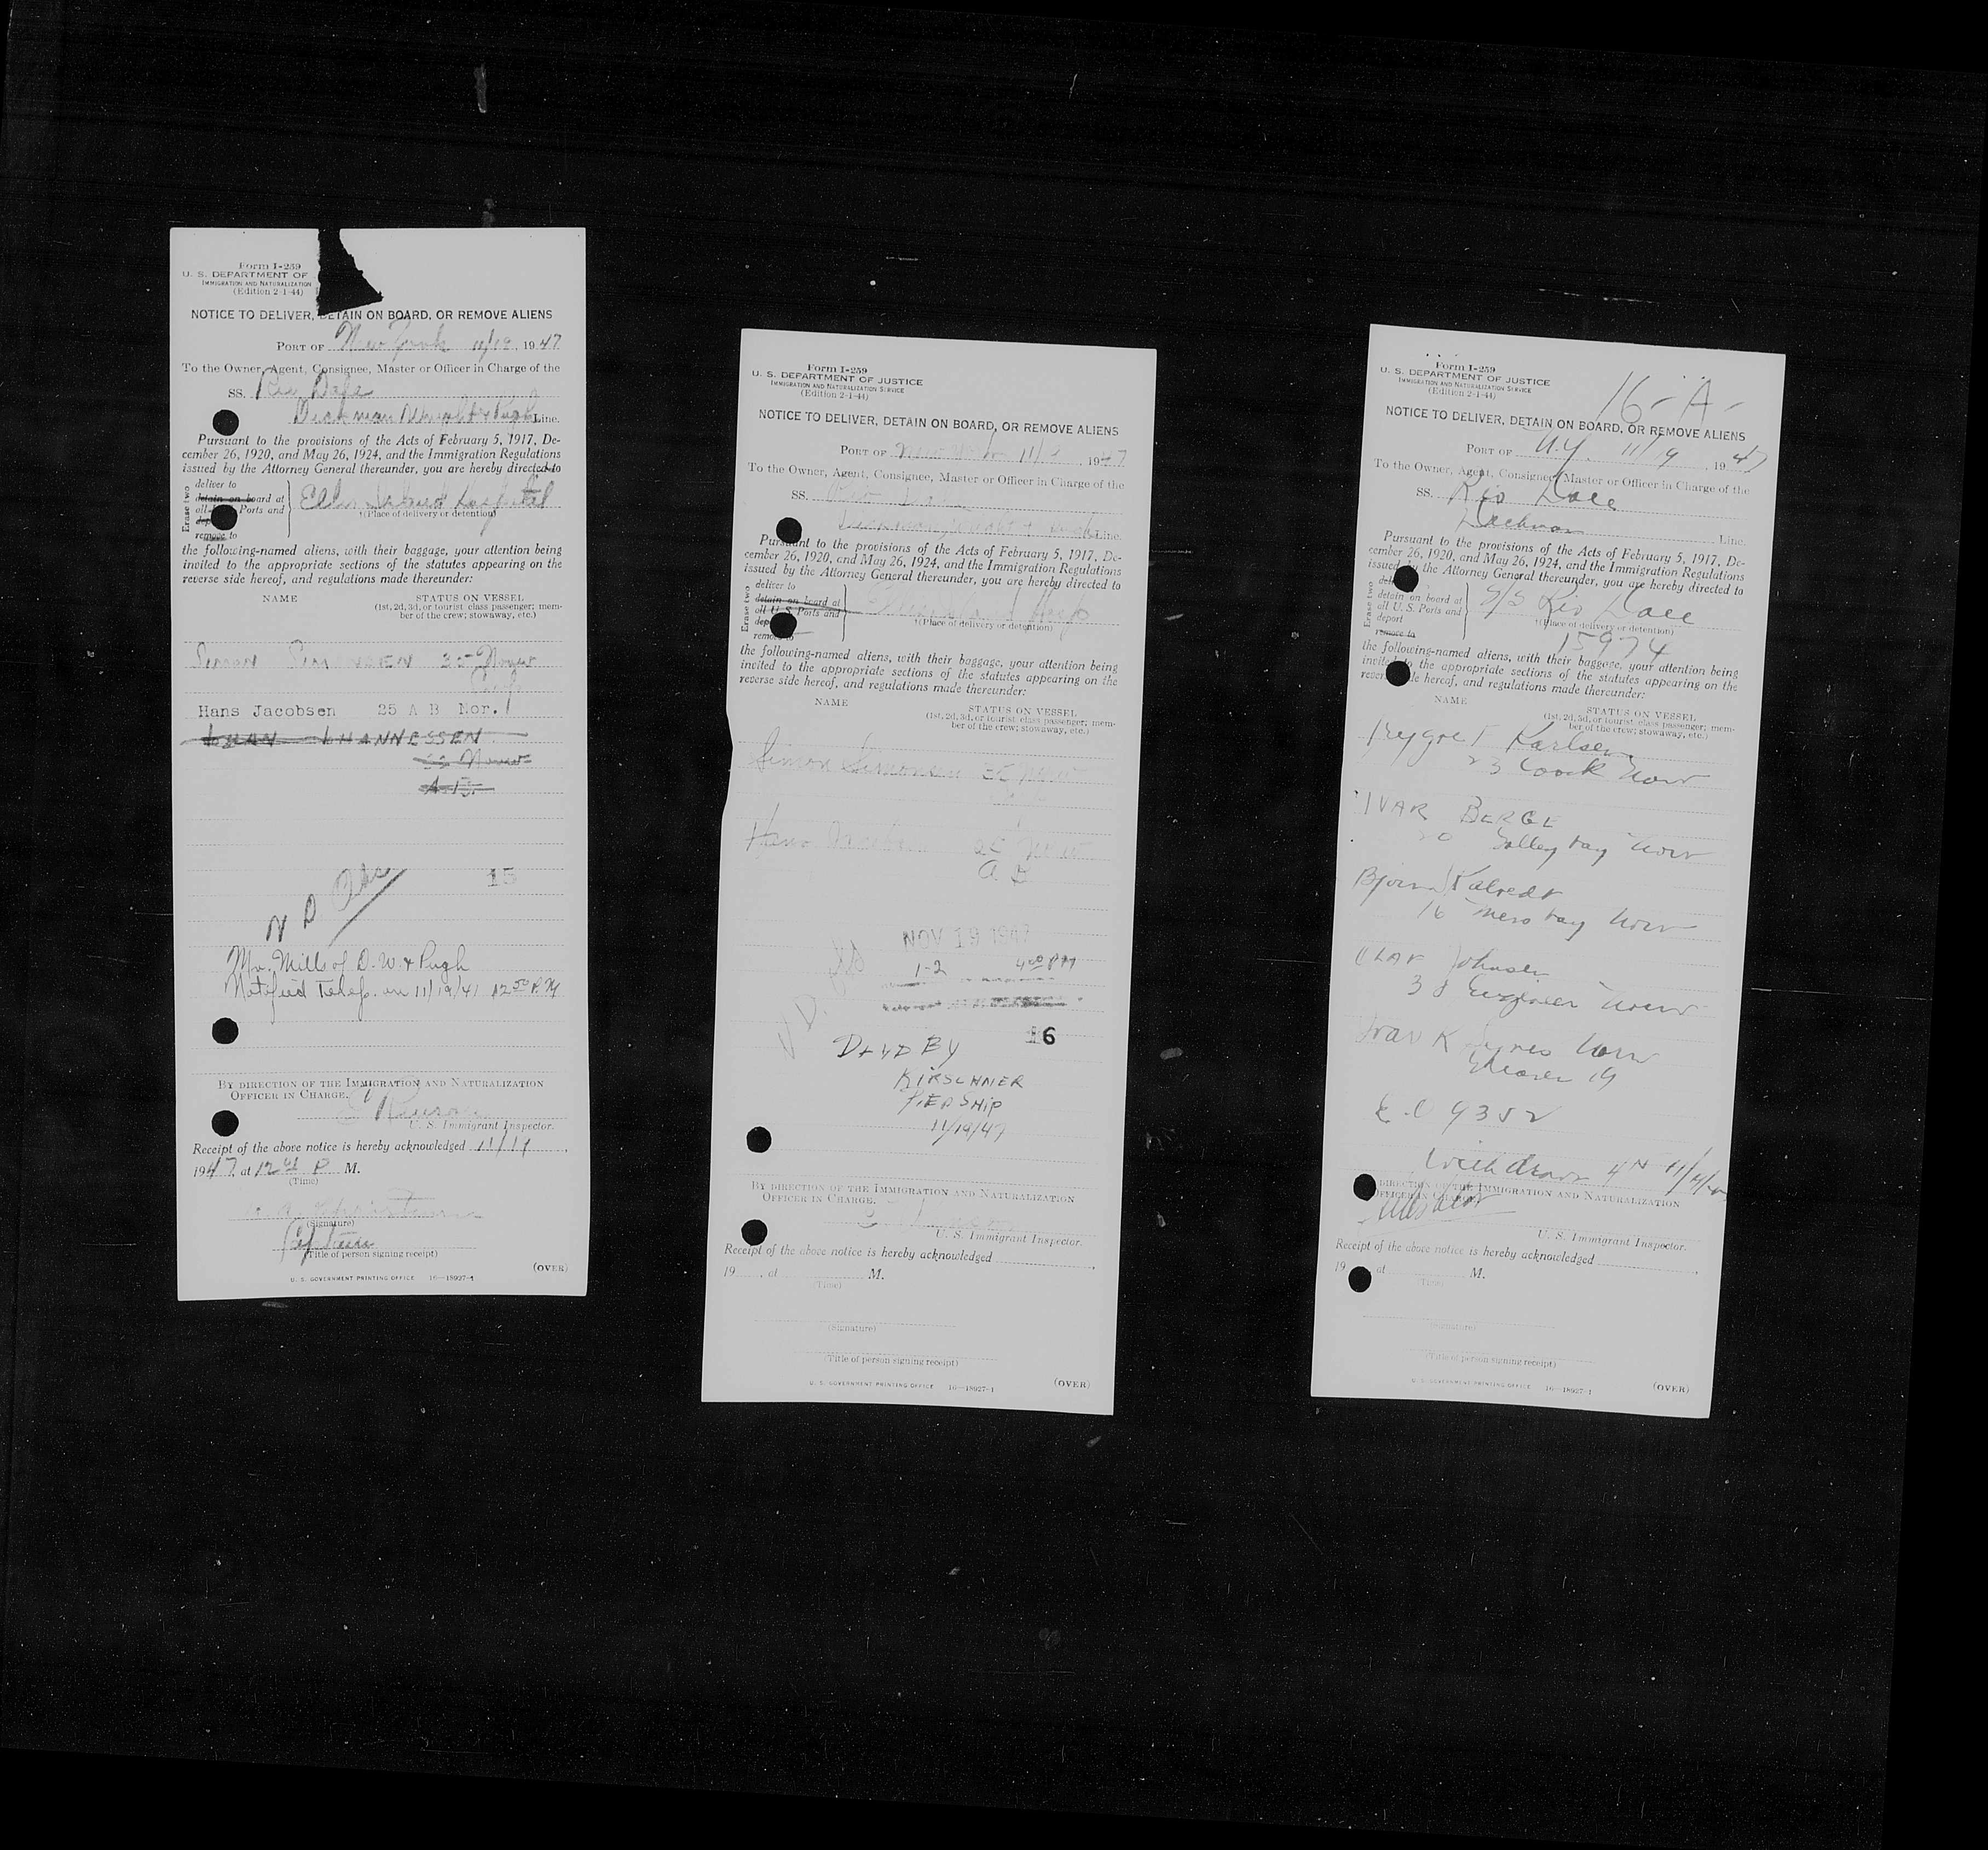 Form I-259
U. S. DEPARTMENT OF
IMMIGRATION AND NATURALIZATION
(Edition 2-1-44)
NOTICE TO DELIVER, DETAIN ON BOARD, OR REMOVE ALIENS
PORT OF New York 11/19, 1947
To the Owner, Agent, Consignee, Master or Officer in Charge of the
SS. Rio Dale
Dichman Wright & Pugh Line.
Pursuant to the provisions of the Acts of February 5, 1917, De-
cember 26, 1920, and May 26, 1924, and the Immigration Regulations
issued by the Attorney General thereunder, you are hereby directed to
Erase two
deliver to
detain on board at
all Ports and
remove to
Ellis Island Hospital
†(Place of delivery or detention)
the following-named aliens, with their baggage, your attention being
invited to the appropriate sections of the statutes appearing on the
reverse side hereof, and regulations made thereunder:
NAME STATUS ON VESSEL
(1st, 2d, 3d, or tourist class passenger; mem-
ber of the crew; stowaway, etc.)
SIMON SIMONSEN 35 Norw
Hans Jacobsen 25 A B Nor. 1
JOHAN JOHANNESSEN
Norw
A.B.
15
N D
Mr. Mills of D. W. & Pugh
Notified Telep. on 11/19/47 12 50 P.M
BY DIRECTION OF THE IMMIGRATION AND NATURALIZATION
OFFICER IN CHARGE.
U. S. Immigrant Inspector.
Receipt of the above notice is hereby acknowledged 11/19,
1947, at 12 P M.
(Time)
(Signature)
Captain
(Title of person signing receipt)
(OVER)
U. S. GOVERNMENT PRINTING OFFICE 16—18927-1
Form I-259
U. S. DEPARTMENT OF JUSTICE
IMMIGRATION AND NATURALIZATION SERVICE
(Edition 2-1-44)
NOTICE TO DELIVER, DETAIN ON BOARD, OR REMOVE ALIENS
PORT OF New York 11/19, 1947
To the Owner, Agent, Consignee, Master or Officer in Charge of the
SS. Rio
Dichman, Wright & Pugh Line.
Pursuant to the provisions of the Acts of February 5, 1917, De-
cember 26, 1920, and May 26, 1924, and the Immigration Regulations
issued by the Attorney General thereunder, you are hereby directed to
Erase two
deliver to
detain on board at
all U. S. Ports and
remove to
Ellis Island Hosp
†(Place of delivery or detention)
the following-named aliens, with their baggage, your attention being
invited to the appropriate sections of the statutes appearing on the
reverse side hereof, and regulations made thereunder:
NAME STATUS ON VESSEL
(1st, 2d, 3d, or tourist class passenger; mem-
ber of the crew; stowaway, etc.)
Simon Simonsen 35 Norw
Hans Jacobsen 25 Norw
A B
NOV 19 1947
1-2 4 00 PM
16
BY
KIRSCHNER
SHIP
11/19/47
BY DIRECTION OF THE IMMIGRATION AND NATURALIZATION
OFFICER IN CHARGE.
U. S. Immigrant Inspector.
Receipt of the above notice is hereby acknowledged
19 , at M.
(Time)
(Signature)
(Title of person signing receipt)
U. S. GOVERNMENT PRINTING OFFICE 16—18927-1 (OVER)
Form I-259
U. S. DEPARTMENT OF JUSTICE
IMMIGRATION AND NATURALIZATION SERVICE
(Edition 2-1-44)
16-A-
NOTICE TO DELIVER, DETAIN ON BOARD, OR REMOVE ALIENS
PORT OF N.Y. 11/19, 1947
To the Owner, Agent, Consignee, Master or Officer in Charge of the
SS. Rio Dale
Line.
Pursuant to the provisions of the Acts of February 5, 1917, De-
cember 26, 1920, and May 26, 1924, and the Immigration Regulations
issued by the Attorney General thereunder, you are hereby directed to
Erase two
detain on board at
all U. S. Ports and
deport
remove to
S/S Rio Dale
†(Place of delivery or detention)
15974
the following-named aliens, with their baggage, your attention being
invited to the appropriate sections of the statutes appearing on the
reverse side hereof, and regulations made thereunder:
NAME STATUS ON VESSEL
(1st, 2d, 3d, or tourist class passenger; mem-
ber of the crew; stowaway, etc.)
Karlsen
23 Cook Norw
IVAR BERGE
20 Galley boy Norw
Bjorn
16 Mess boy Norw
OLAF Johnsen
38 Engineer Norw
Norw
19
E.O 9352
Withdrawn
DIRECTION OF THE IMMIGRATION AND NATURALIZATION
OFFICER IN CHARGE
U. S. Immigrant Inspector.
Receipt of the above notice is hereby acknowledged
19 at M.
(Time)
(Signature)
(Title of person signing receipt)
U. S. GOVERNMENT PRINTING OFFICE 16—18927-1 (OVER)